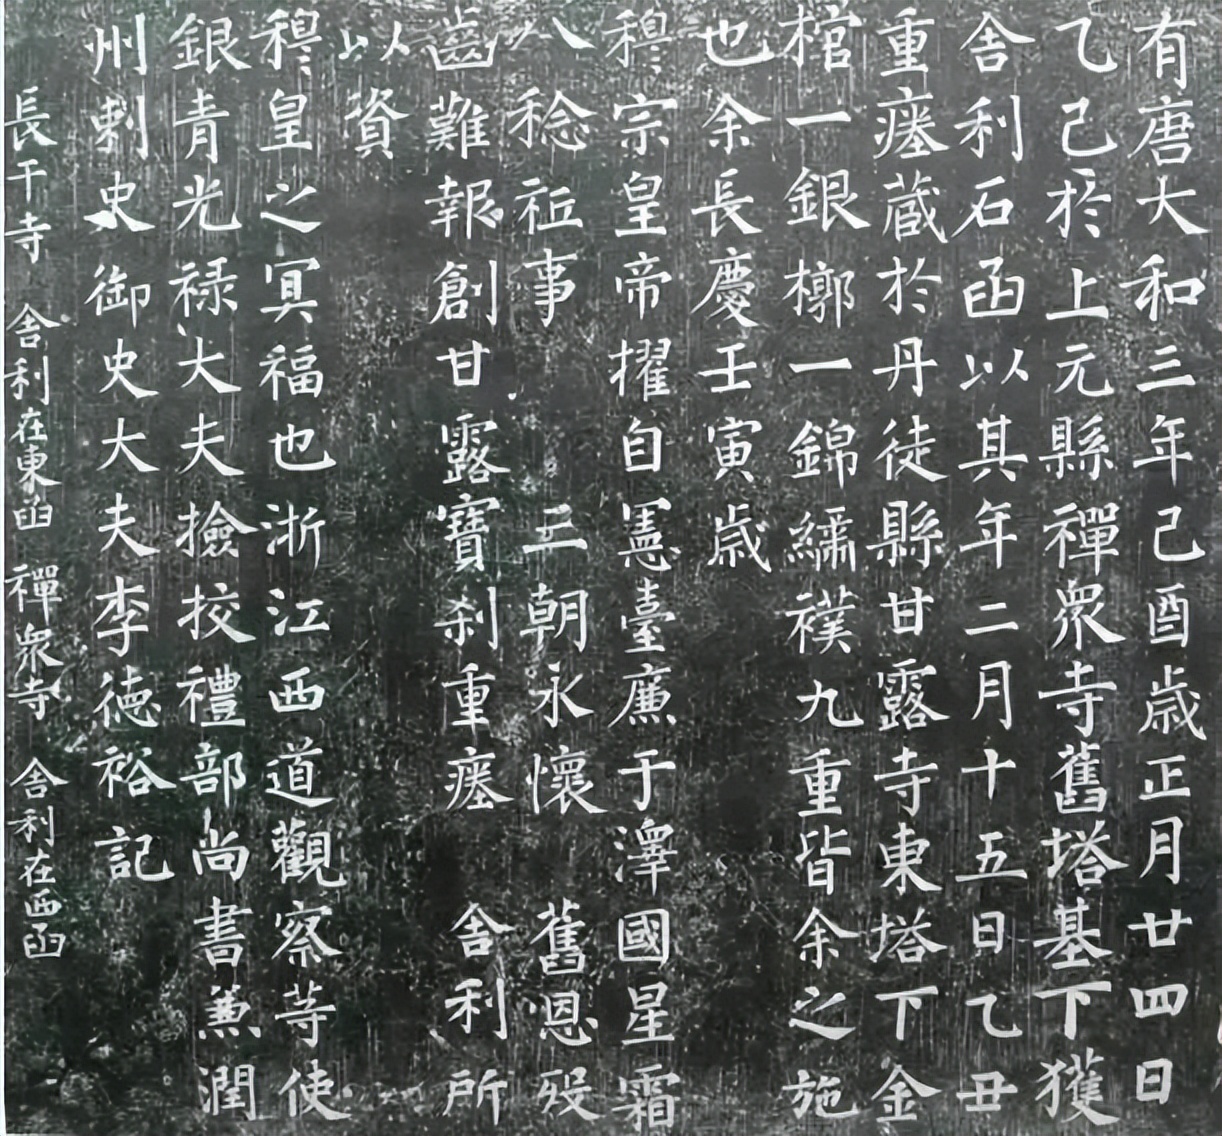 有唐大和三年己酉歳正月廿四日
乙巳於上元縣禪衆寺舊塔基下獲
舍利石函以其年二月十五日乙丑
重瘞藏於丹徒縣甘露寺東塔下金
棺一銀槨一錦繡襆九重皆余之施
也余長慶壬寅歳
穆宗皇帝擢自憲臺廉于澤國星霜
八稔祗事 三朝永懷 舊恩歿
齒難報創甘露寶刹重瘞 舍利所
以資
穆皇之冥福也浙江西道觀察等使
銀青光禄大夫撿挍禮部尚書兼潤
州刺史御史大夫李德裕記
長干寺 舍利在東函 禪衆寺 舍利在西函